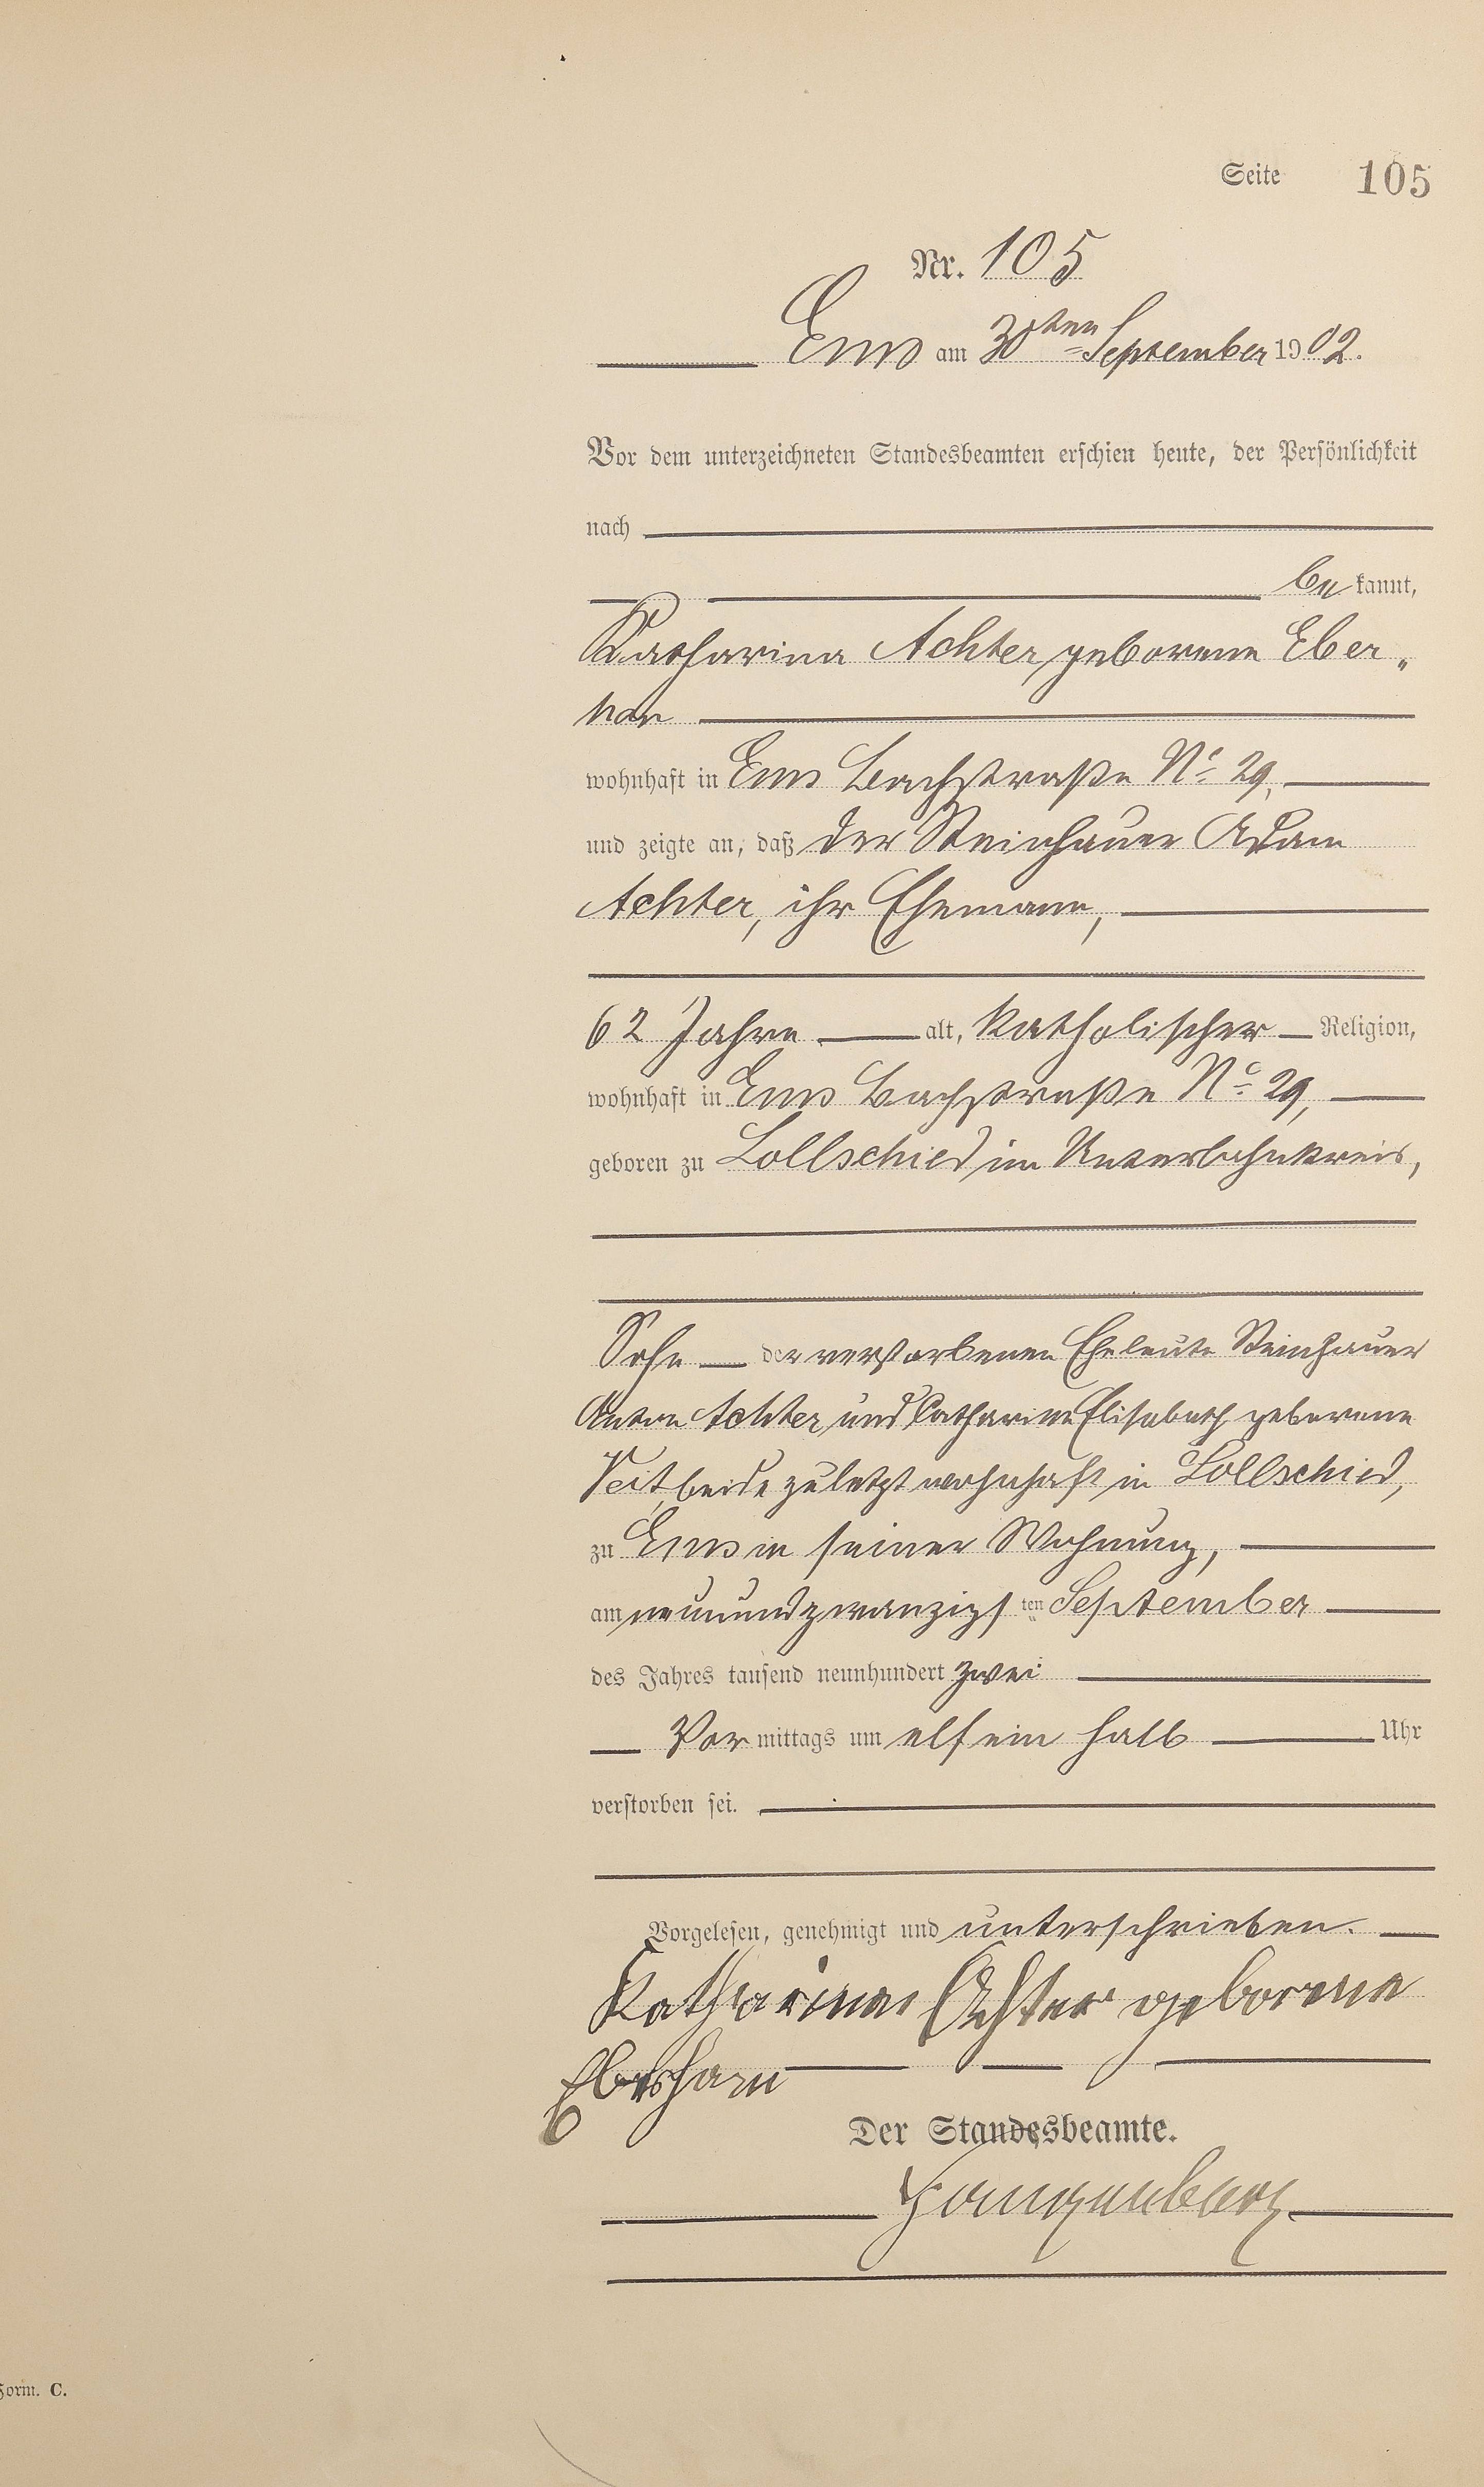 Seite 105
Nr. 105
Ems am 30ten September 1902.
Vor dem unterzeichneten Standesbeamten erschien heute, der Persönlichkeit
nach
be kannt,
Katharina Achter geborene Eber„
han
wohnhaft in Ems Bachstraße No 29,
und zeigte an, daß der Steinhauer Adam
Achter, ihr Ehemann,
62 Jahre alt, katholischer Religion,
wohnhaft in Ems Bachstraße No 29,
geboren zu Lollschied im Unterlahnkreis,
Sohn der verstorbenen Eheleute Steinhauer
Anton Achter und Catharine Elisabeth geborene
beide zuletzt wohnhaft in Lollschied,
zu Ems in seiner Wohnung,
am neunundzwanzigs ten September
des Jahres tausend neunhundert zwei
Vor mittags um elf ein halb Uhr
verstorben sei.
Vorgelesen, genehmigt und unterschrieben.
Katharina Achter geborene
Der Standesbeamte.
Form. C.